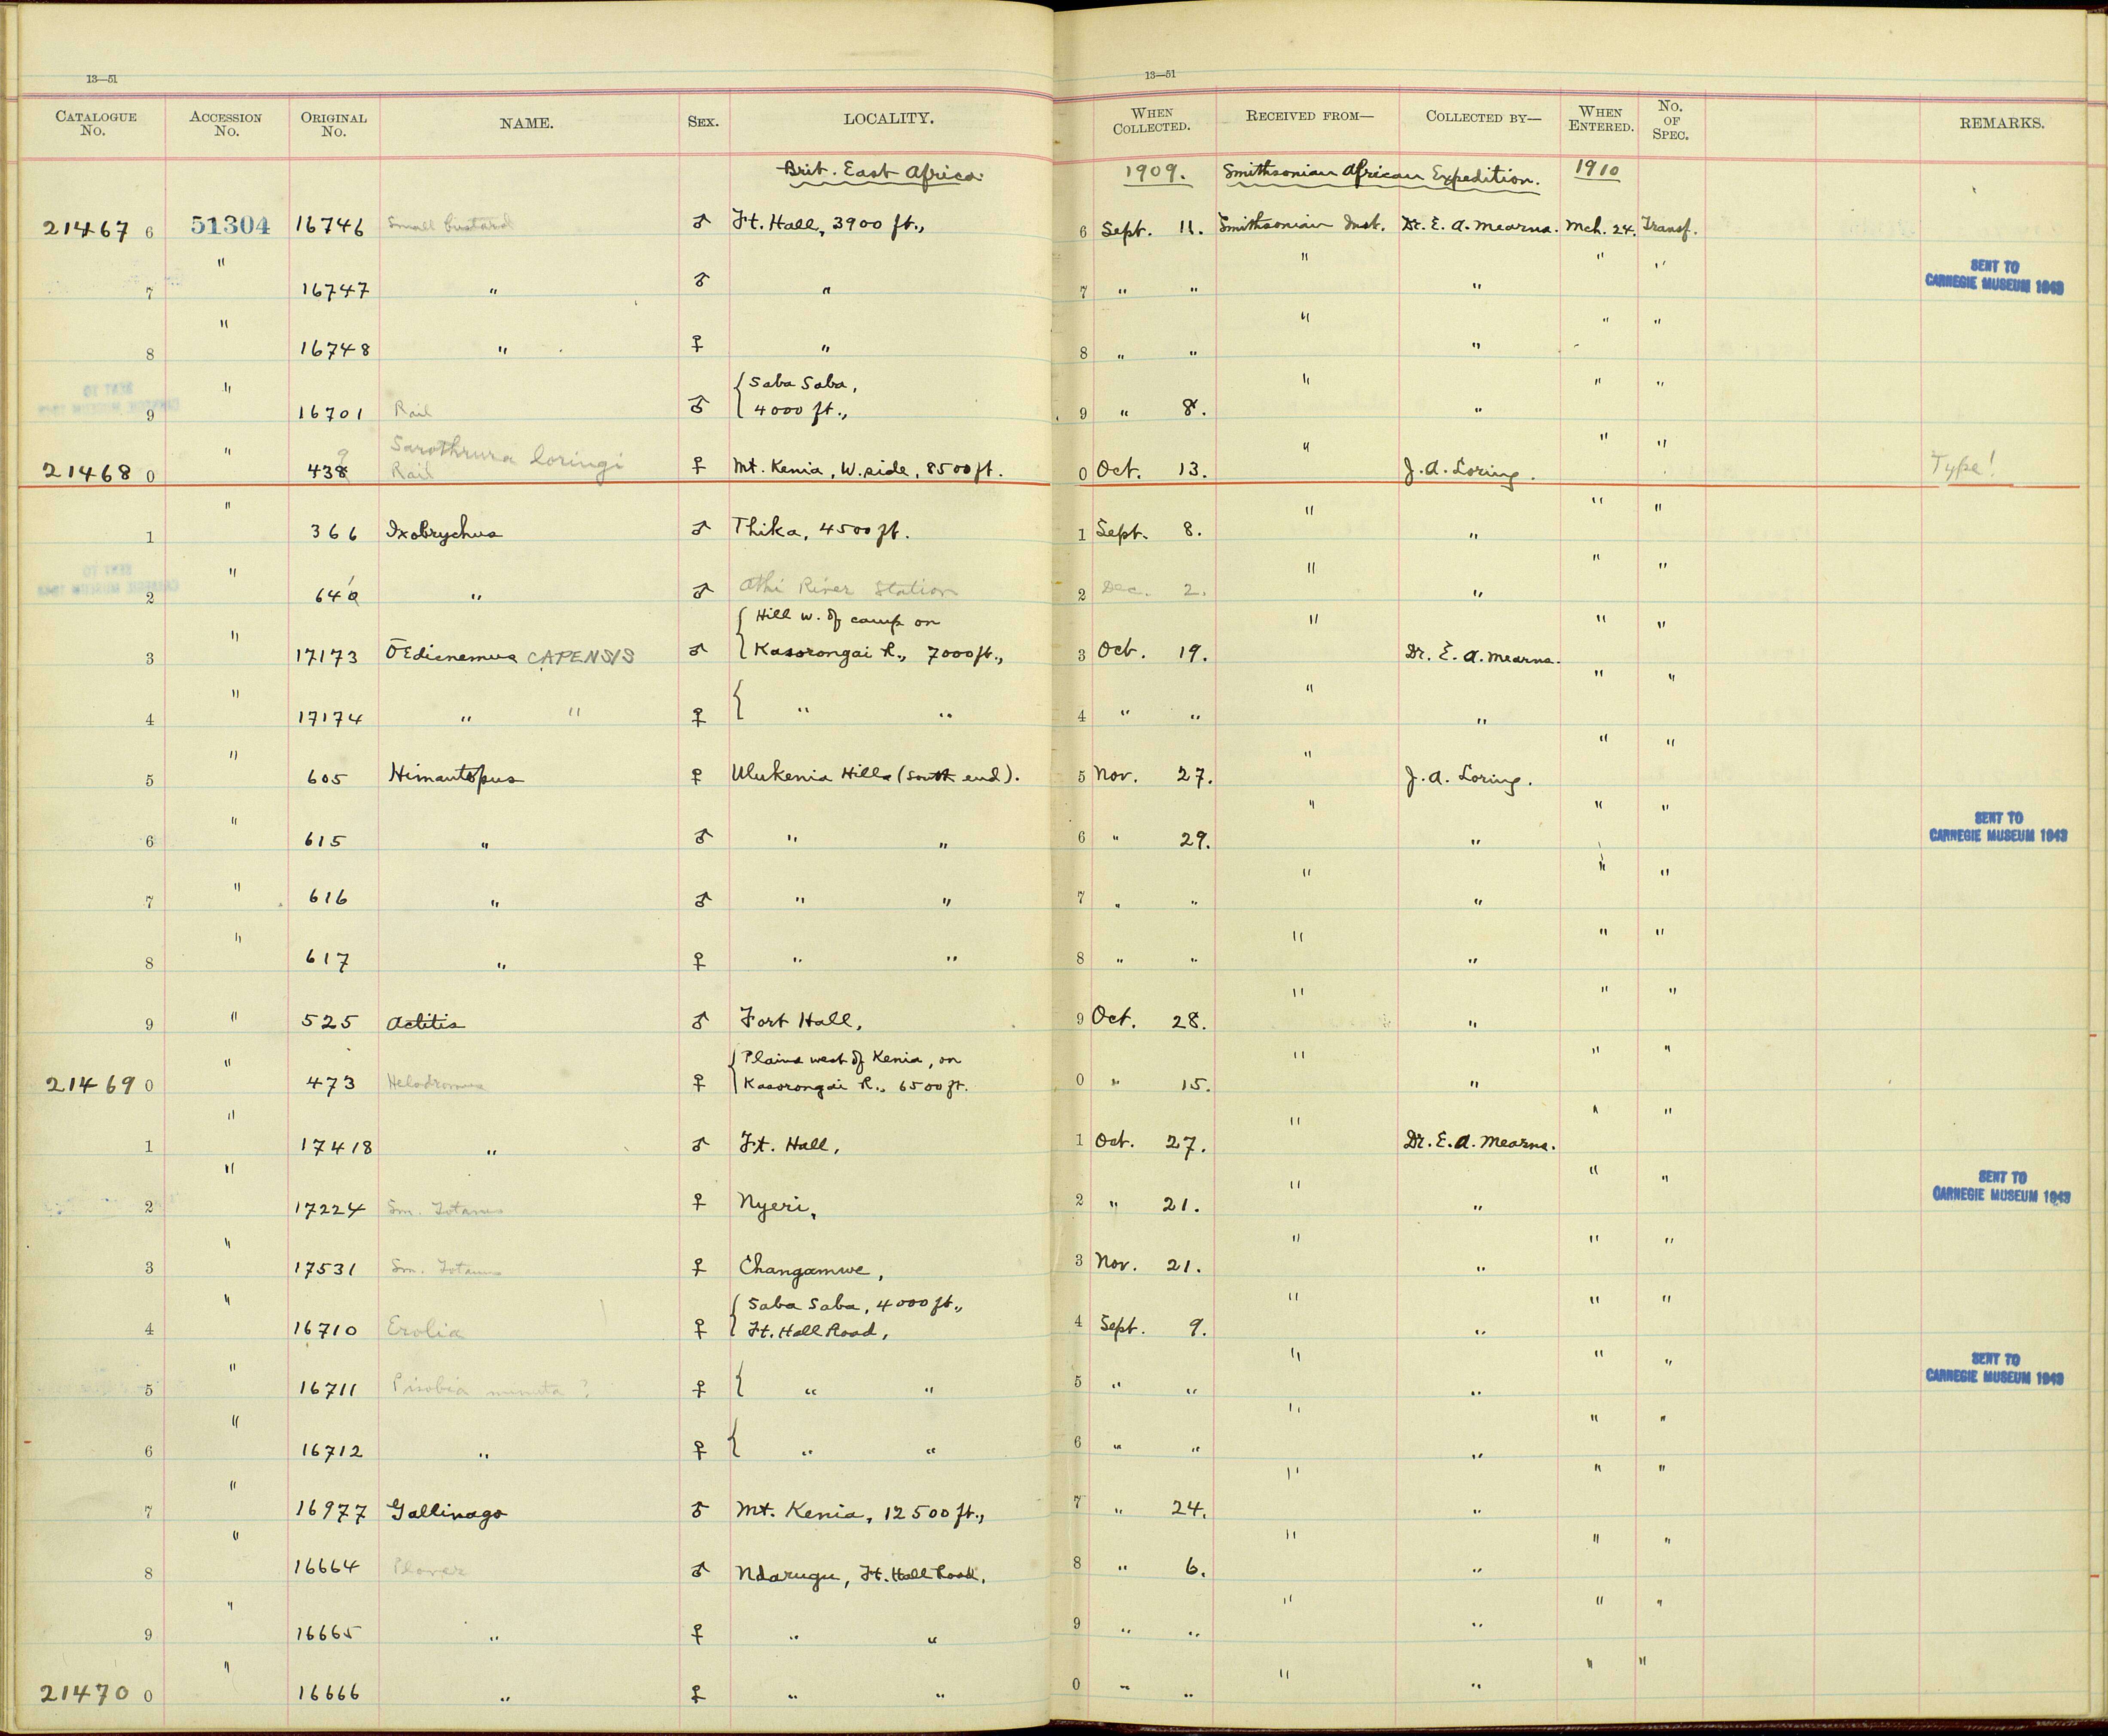 13—51 13—51
CATALOGUE No. ACCESSION No. ORIGINAL No. NAME. SEX. LOCALITY. WHEN COLLECTED. RECEIVED FROM— COLLECTED BY— WHEN ENTERED. No. OF SPEC. REMARKS.
Brit. East Africa. 1909. Smithsonian African Expedition. 1910
21467 6 51304 16746 Small bustard ♂ Ft. Hall, 3900 ft., 6 Sept. 11. Smithsonian Inst. Dr. E. A. Mearns. Mch. 24. Transf.
7 " 16747 " ♂ " 7 " " " " " " SENT TO CARNEGIE MUSEUM 1943
8 " 16748 " ♀ " 8 " " " " " "
9 " 16701 Rail ♂ { Saba Saba, 4000 ft., 9 " 8. " " " "
Sarothrura loringi
21468 0 " 438 9 Rail ♀ Mt. Kenia, W. side, 8500 ft. 0 Oct. 13. " J. A. Loring. " " Type!
1 " 366 Ixobrychus ♂ Thika, 4500 ft. 1 Sept. 8. " " " "
2 " 640 ♂ " Athi River Station 2 Dec. 2. " " " "
3 " 17173 Œdicnemus CAPENSIS ♂ { Hill W. of camp on Kasorongai R., 7000 ft., 3 Oct. 19. " Dr. E. A. Mearns. " "
4 " 17174 " " ♀ { " " 4 " " " " " "
5 " 605 Himantopus ♀ Ulukenia Hills (South end). 5 Nov. 27. " J. A. Loring. " "
6 " 615 " ♂ " " 6 " 29. " " " " SENT TO CARNEGIE MUSEUM 1943
7 " 616 " ♂ " " 7 " " " " " "
8 " 617 " ♀ " " 8 " " " " " "
9 " 525 Actitis ♂ Fort Hall, 9 Oct. 28. " " " "
21469 0 " 473 Helodromus ♀ { Plains west of Kenia, on Kasorongai R., 6500 ft. 0 " 15. " " " "
1 " 17418 " ♂ Ft. Hall, 1 Oct. 27. " Dr. E. A. Mearns. " "
2 " 17224 Sm. Totanus ♀ Nyeri, 2 " 21. " " " " SENT TO CARNEGIE MUSEUM 1943
3 " 17531 Sm. Totanus ♀ Changamwe, 3 Nov. 21. " " " "
4 " 16710 Erolia ♀ { Saba Saba, 4000 ft., Ft. Hall Road, 4 Sept. 9. " " " "
5 " 16711 Pisobia minuta ? ♀ { " " 5 " " " " " " SENT TO CARNEGIE MUSEUM 1943
6 " 16712 " ♀ { " " 6 " " " " " "
7 " 16977 Gallinago ♂ Mt. Kenia, 12500 ft., 7 " 24. " " " "
8 " 16664 Plover ♂ Ndarugu, Ft. Hall Road, 8 " 6. " " " "
9 " 16665 " ♀ " " 9 " " " " " "
21470 0 " 16666 " ♀ " " 0 " " " " " "